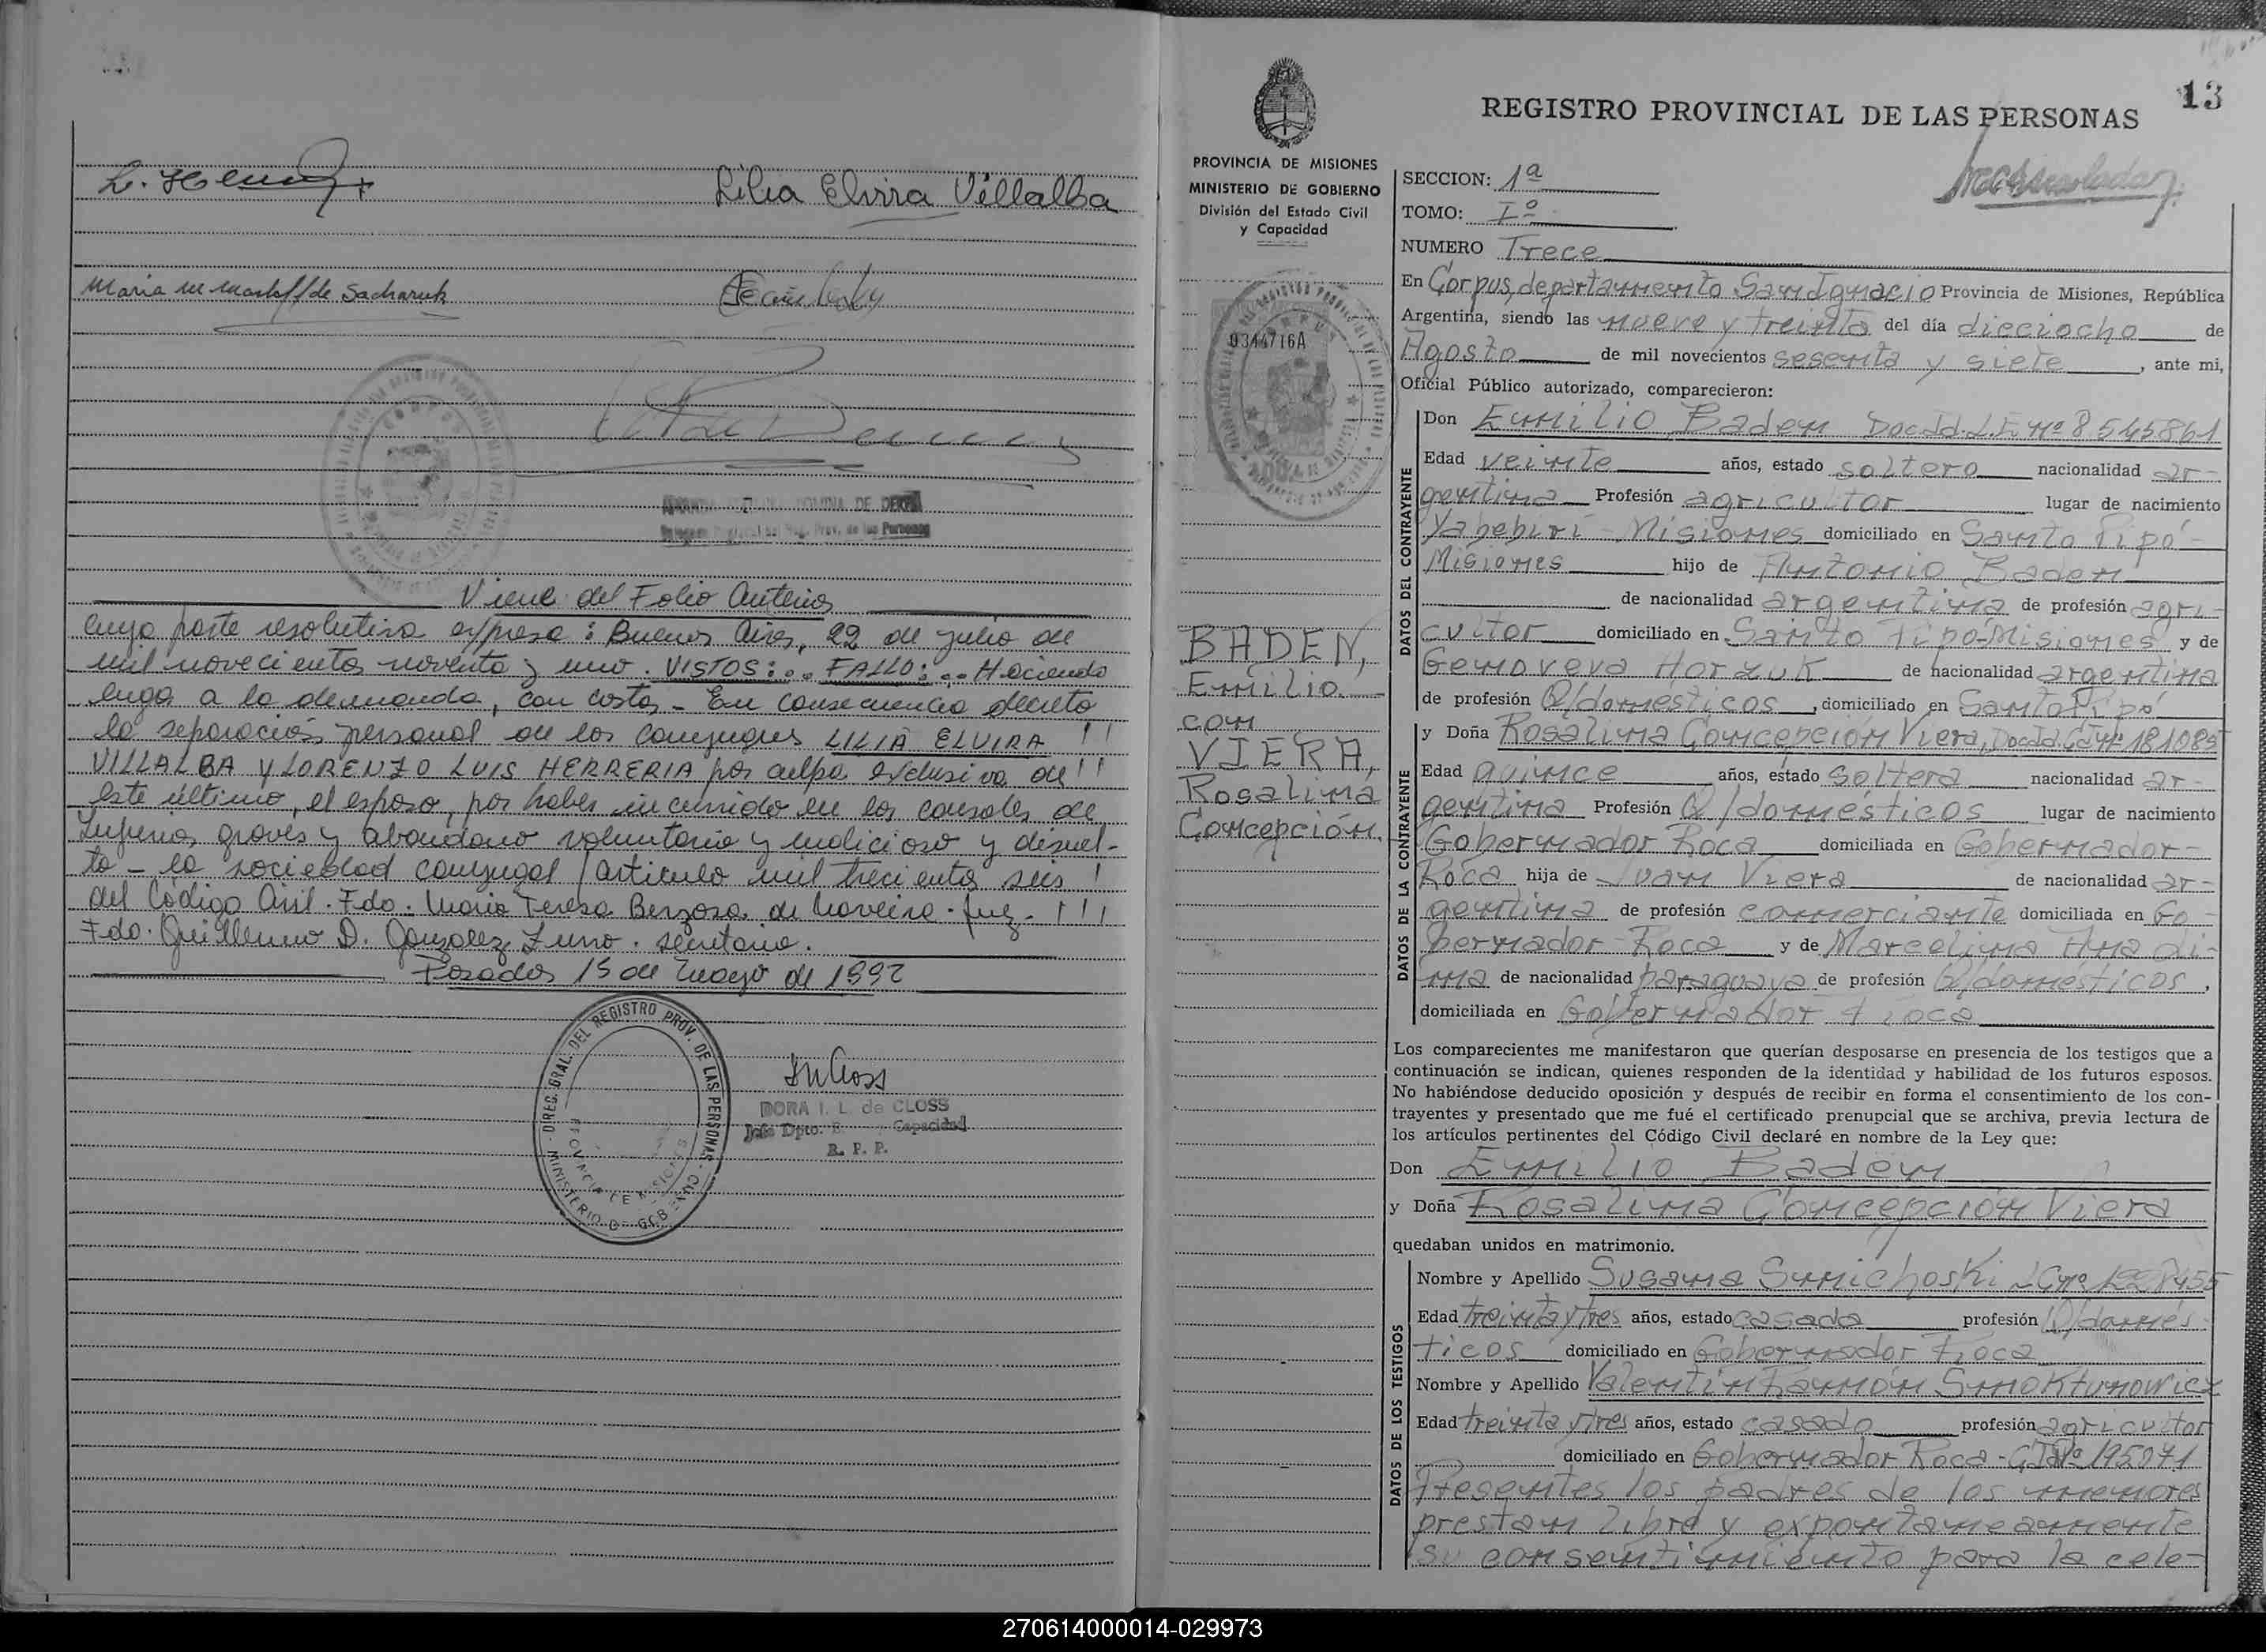 Lilia Elvira Villalba
Maria M. Marloff de Sacharuk
Viene del Folio Anterior
cuya parte resolutiva expresa: Buenos Aires, 29 de julio de
mil novecientos noventa y uno. VISTOS:.. FALLO:.. Haciendo
lugar a la demanda, con costas - En consecuencia decreto
la separación personal de los conyuges LILIA ELVIRA
VILLALBA Y LORENZO LUIS HERRERIA por culpa exclusiva de
este último, el esposo, por haber incurrido en las causales de
Injurias graves y abandono voluntario y malicioso y disuel-
ta - la sociedad conyugal (articulo mil trecientos seis
del Código Civil. Fdo. Maria Teresa de juez -
Fdo. Guillermo D. Gonzalez Zurro. secretario.
Posadas 15 de mayo de 1992
DIREC. GRAL. DEL REGISTRO PROV. DE LAS PERSONAS
PROVINCIA DE MISIONES
MINISTERIO DE GOB
DORA I. L. de CLOSS
Jefe Dpto. Capacidad
R. P. P.
13
REGISTRO PROVINCIAL DE LAS PERSONAS
PROVINCIA DE MISIONES
MINISTERIO DE GOBIERNO
División del Estado Civil
y Capacidad
0344716A
BADEN,
Emilio
con
VIERA,
Rosalina
Concepción.
SECCION: 1ª
TOMO: Iº
NUMERO Trece
En Corpus, departamento San Ignacio Provincia de Misiones, República
Argentina, siendo las nueve y treinta del día dieciocho de
Agosto de mil novecientos sesenta y siete, ante mi,
Oficial Público autorizado, comparecieron:
DATOS DEL CONTRAYENTE
Don Emilio Baden Doc.Id.L.E. nº 8545861
Edad veinte años, estado soltero nacionalidad ar-
gentina Profesión agricultor lugar de nacimiento
Yabebirí - Misiones domiciliado en Santo Pipó -
Misiones hijo de Antonio Baden
de nacionalidad argentina de profesión agri-
cultor domiciliado en Santo Pipo-Misiones y de
Genoveva Horzuk de nacionalidad argentina
de profesión Q/domesticos, domiciliado en Santo Pipó
DATOS DE LA CONTRAYENTE
y Doña Rosalina Concepción Viera, Doc.Id.C.I.nº 181085
Edad quince años, estado soltera nacionalidad ar-
gentina Profesión Q/domésticos lugar de nacimiento
Gobernador Roca domiciliada en Gobernador-
Roca hija de Juan Viera de nacionalidad ar-
gentina de profesión comerciante domiciliada en Go-
bernador Roca y de Marcelina Ana
de nacionalidad paraguaya de profesión Q/domésticos,
domiciliada en Gobernador Roca
Los comparecientes me manifestaron que querían desposarse en presencia de los testigos que a
continuación se indican, quienes responden de la identidad y habilidad de los futuros esposos.
No habiéndose deducido oposición y después de recibir en forma el consentimiento de los con-
trayentes y presentado que me fué el certificado prenupcial que se archiva, previa lectura de
los artículos pertinentes del Código Civil declaré en nombre de la Ley que:
Don Emilio Baden
y Doña Rosalina Concepción Viera
quedaban unidos en matrimonio.
DATOS DE LOS TESTIGOS
Nombre y Apellido Susana Smichoski
Edad treinta y tres años, estado casada profesión Q/domés-
ticos domiciliado en Gobernador Roca
Nombre y Apellido Valentín Ramón Smoktunowicz
Edad treinta y tres años, estado casado profesión agricultor
domiciliado en Gobernador Roca - C.I.Nº 195971
Presentes los padres de los menores
prestan libre y expontaneamente
su consentimiento para la cele-
270614000014-029973